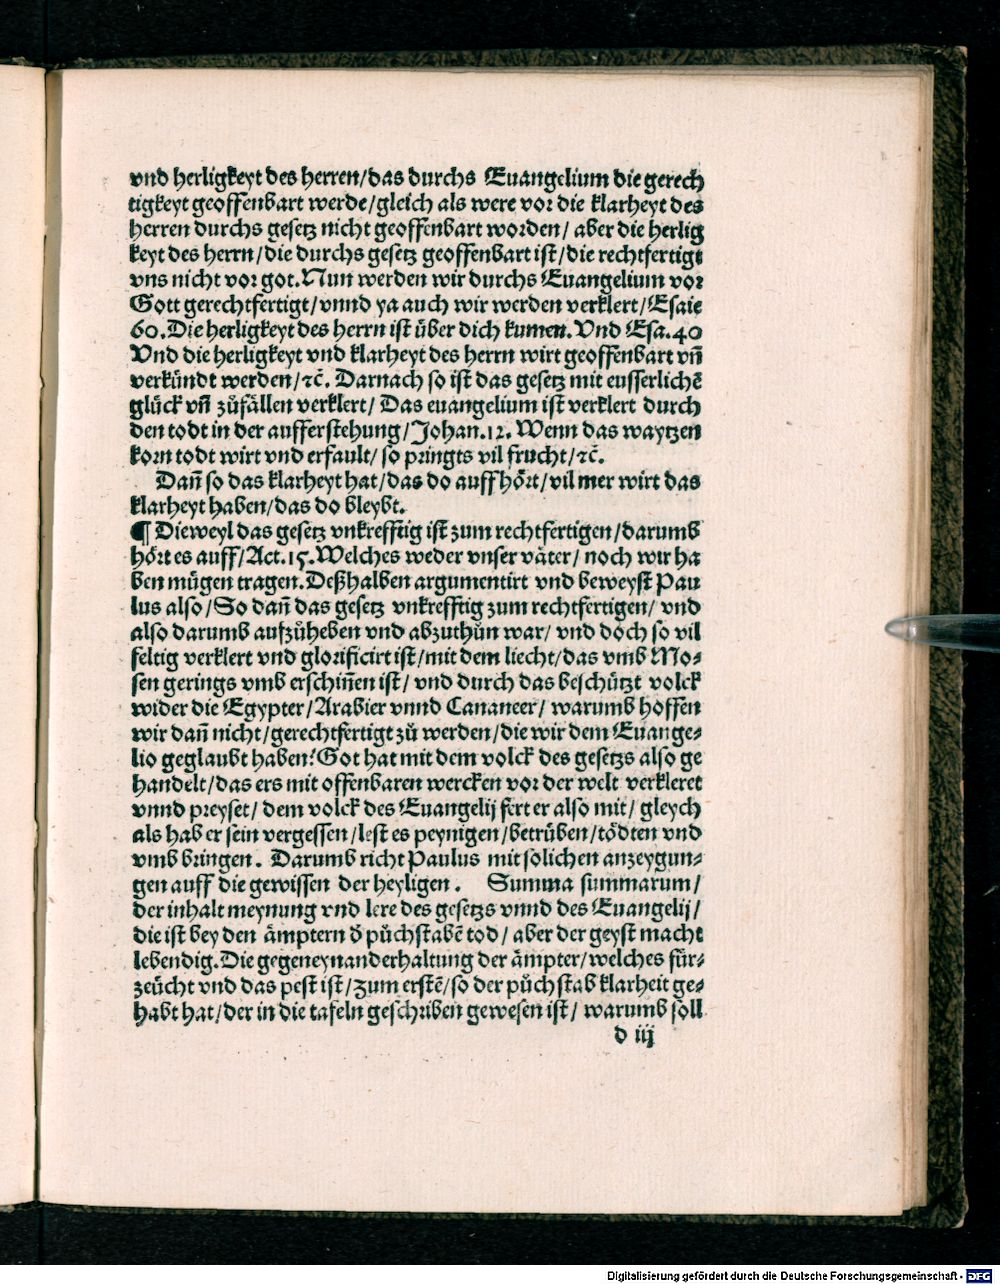 vnd herligkeyt des herren/das durchs Euangelium die gerech
tigkeyt geoffenbart werde/gleich als were vor die klarheyt des
herren durchs gesetz nicht geoffenbart worden/ aber die herlig
keyt des herrn/die durchs gesetz geoffenbart ist/die rechtfertigt
vns nicht vor got. Nun werden wir durchs Euangelium vor
Gott gerechtfertigt/vnnd ya auch wir werden verklert/Esaie
60. Die herligkeyt des herrn ist über dich kumen. Vnd Esa. 40
Vnd die herligkeyt vnd klarheyt des herrn wirt geoffenbart vñ
verkündt werden/ꝛc̃. Darnach so ist das gesetz mit eusserlichẽ
glück vñ zůfällen verklert/ Das euangelium ist verklert durch
den todt in der aufferstehung/Johan. 12. Wenn das waytzen
korn todt wirt vnd erfault/ so pringts vil frucht/ꝛc̃.
Dañ so das klarheyt hat/das do auffhört/vil mer wirt das
klarheyt haben/das do bleybt.
¶ Dieweyl das gesetz vnkrefftig ist zum rechtfertigen/darumb
hört es auff/Act. 15. Welches weder vnser väter/ noch wir ha
ben mügen tragen. Deßhalben argumentirt vnd beweyst Pau
lus also/So dañ das gesetz vnkrefftig zum rechtfertigen/ vnd
also darumb aufzůheben vnd abzuthůn war/ vnd doch so vil
feltig verklert vnd glorificirt ist/mit dem liecht/das vmb Mo⸗
sen gerings vmb erschiñen ist/ vnd durch das beschützt volck
wider die Egypter/Arabier vnnd Cananeer/ warumb hoffen
wir dañ nicht/gerechtfertigt zů werden/die wir dem Euange⸗
lio geglaubt haben? Got hat mit dem volck des gesetzs also ge
handelt/das ers mit offenbaren wercken vor der welt verkleret
vnnd preyset/ dem volck des Euangelij fert er also mit/ gleych
als hab er sein vergessen/lest es peynigen/betrüben/tödten vnd
vmb bringen. Darumb richt Paulus mit solichen anzeygun⸗
gen auff die gewissen der heyligen. Summa summarum/
der inhalt meynung vnd lere des gesetzs vnnd des Euangelij/
die ist bey den ämptern ď půchstabẽ tod/ aber der geyst macht
lebendig. Die gegeneynanderhaltung der ämpter/welches für⸗
zeücht vnd das pest ist/zum erstẽ/so der půchstab klarheit ge⸗
habt hat/der in die tafeln geschriben gewesen ist/ warumb soll
d iij
Digitalisierung gefördert durch die Deutsche Forschungsgemeinschaft - DFG